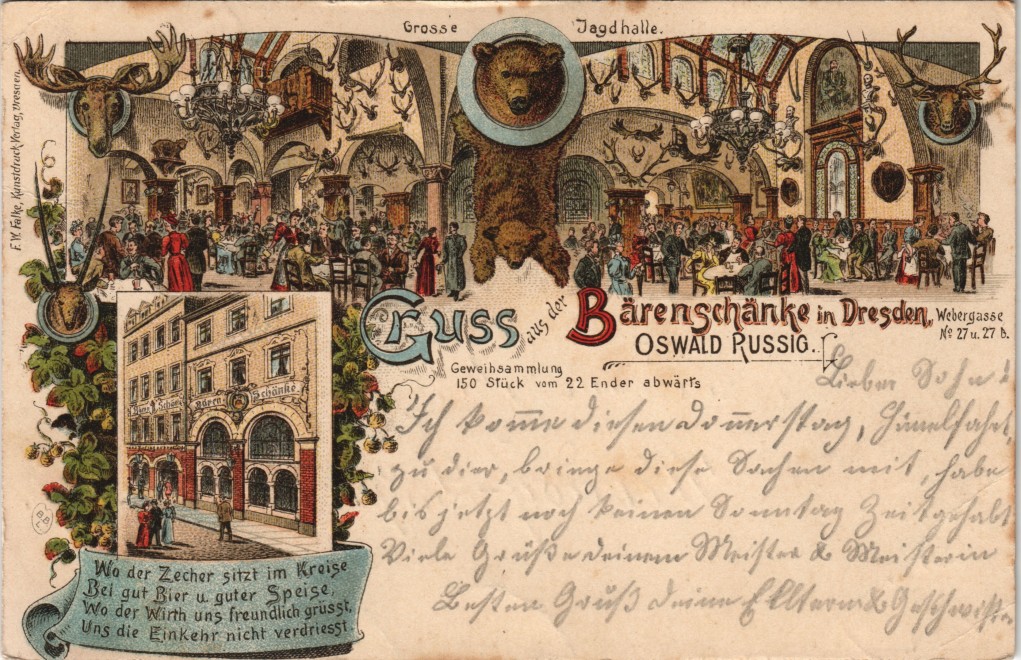 Grosse Jagdhalle.
F. W. Falke, Kunstdruck, Verlag, Dresden.
Gruss aus der Bärenschänke in Dresden, Webergasse
No 27 u. 27 b.
OSWALD RUSSIG.
Geweihsammlung
150 Stück vom 22 Ender abwärts
Bären Schänke.
Lieber Sohn!
Ich komme diesen Donnerstag, Himelfahrt
zu dier, bringe diese Sachen mit, habe
bis jetzt noch keinen Sonntag Zeit gehabt
Viele Grüße deinem Meister & Meisterin
Besten Gruß deine Elltern & Geschwister
Wo der Zecher sitzt im Kreise
Bei gut Bier u. guter Speise,
Wo der Wirth uns freundlich grüsst,
Uns die Einkehr nicht verdriesst.